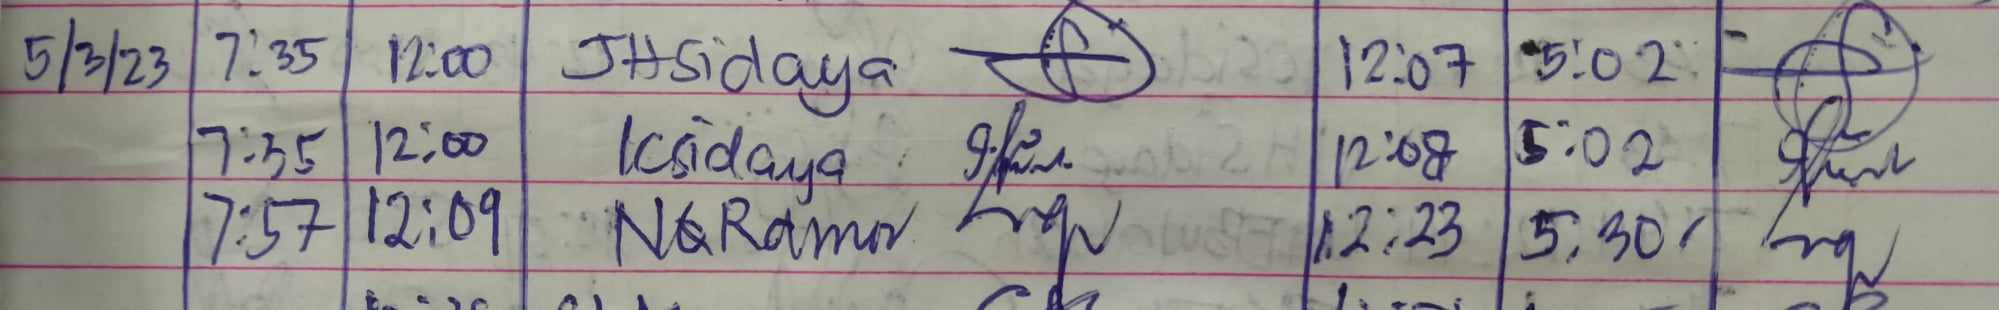 5/3/23 7:35 12:00 JHsidaya 12:07 5:02
7:35 12:00 Icsidaya 12:08 5:02
7:57 12:09 NGRamor 12:23 5:30